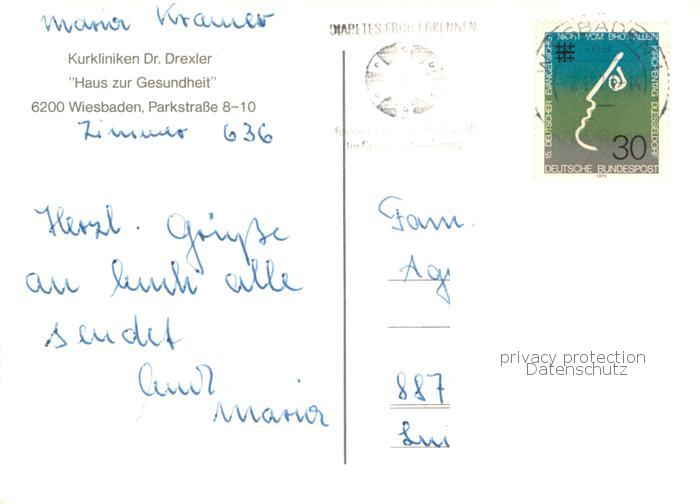 Maria Kramer
Kurkliniken Dr. Drexler
"Haus zur Gesundheit"
6200 Wiesbaden, Parkstraße 8-10
Zimmer 636
Herzl. Grüße
an Euch alle
sendet
Eure
Maria
DIABETES FRÜH ERKENNEN
WIESBADEN
NICHT VOM BROT ALLEIN
15. DEUTSCHER EVANGELISCHER
KIRCHENTAG DÜSSELDORF
30
DEUTSCHE BUNDESPOST
1973
Fam.
887
privacy protection
Datenschutz